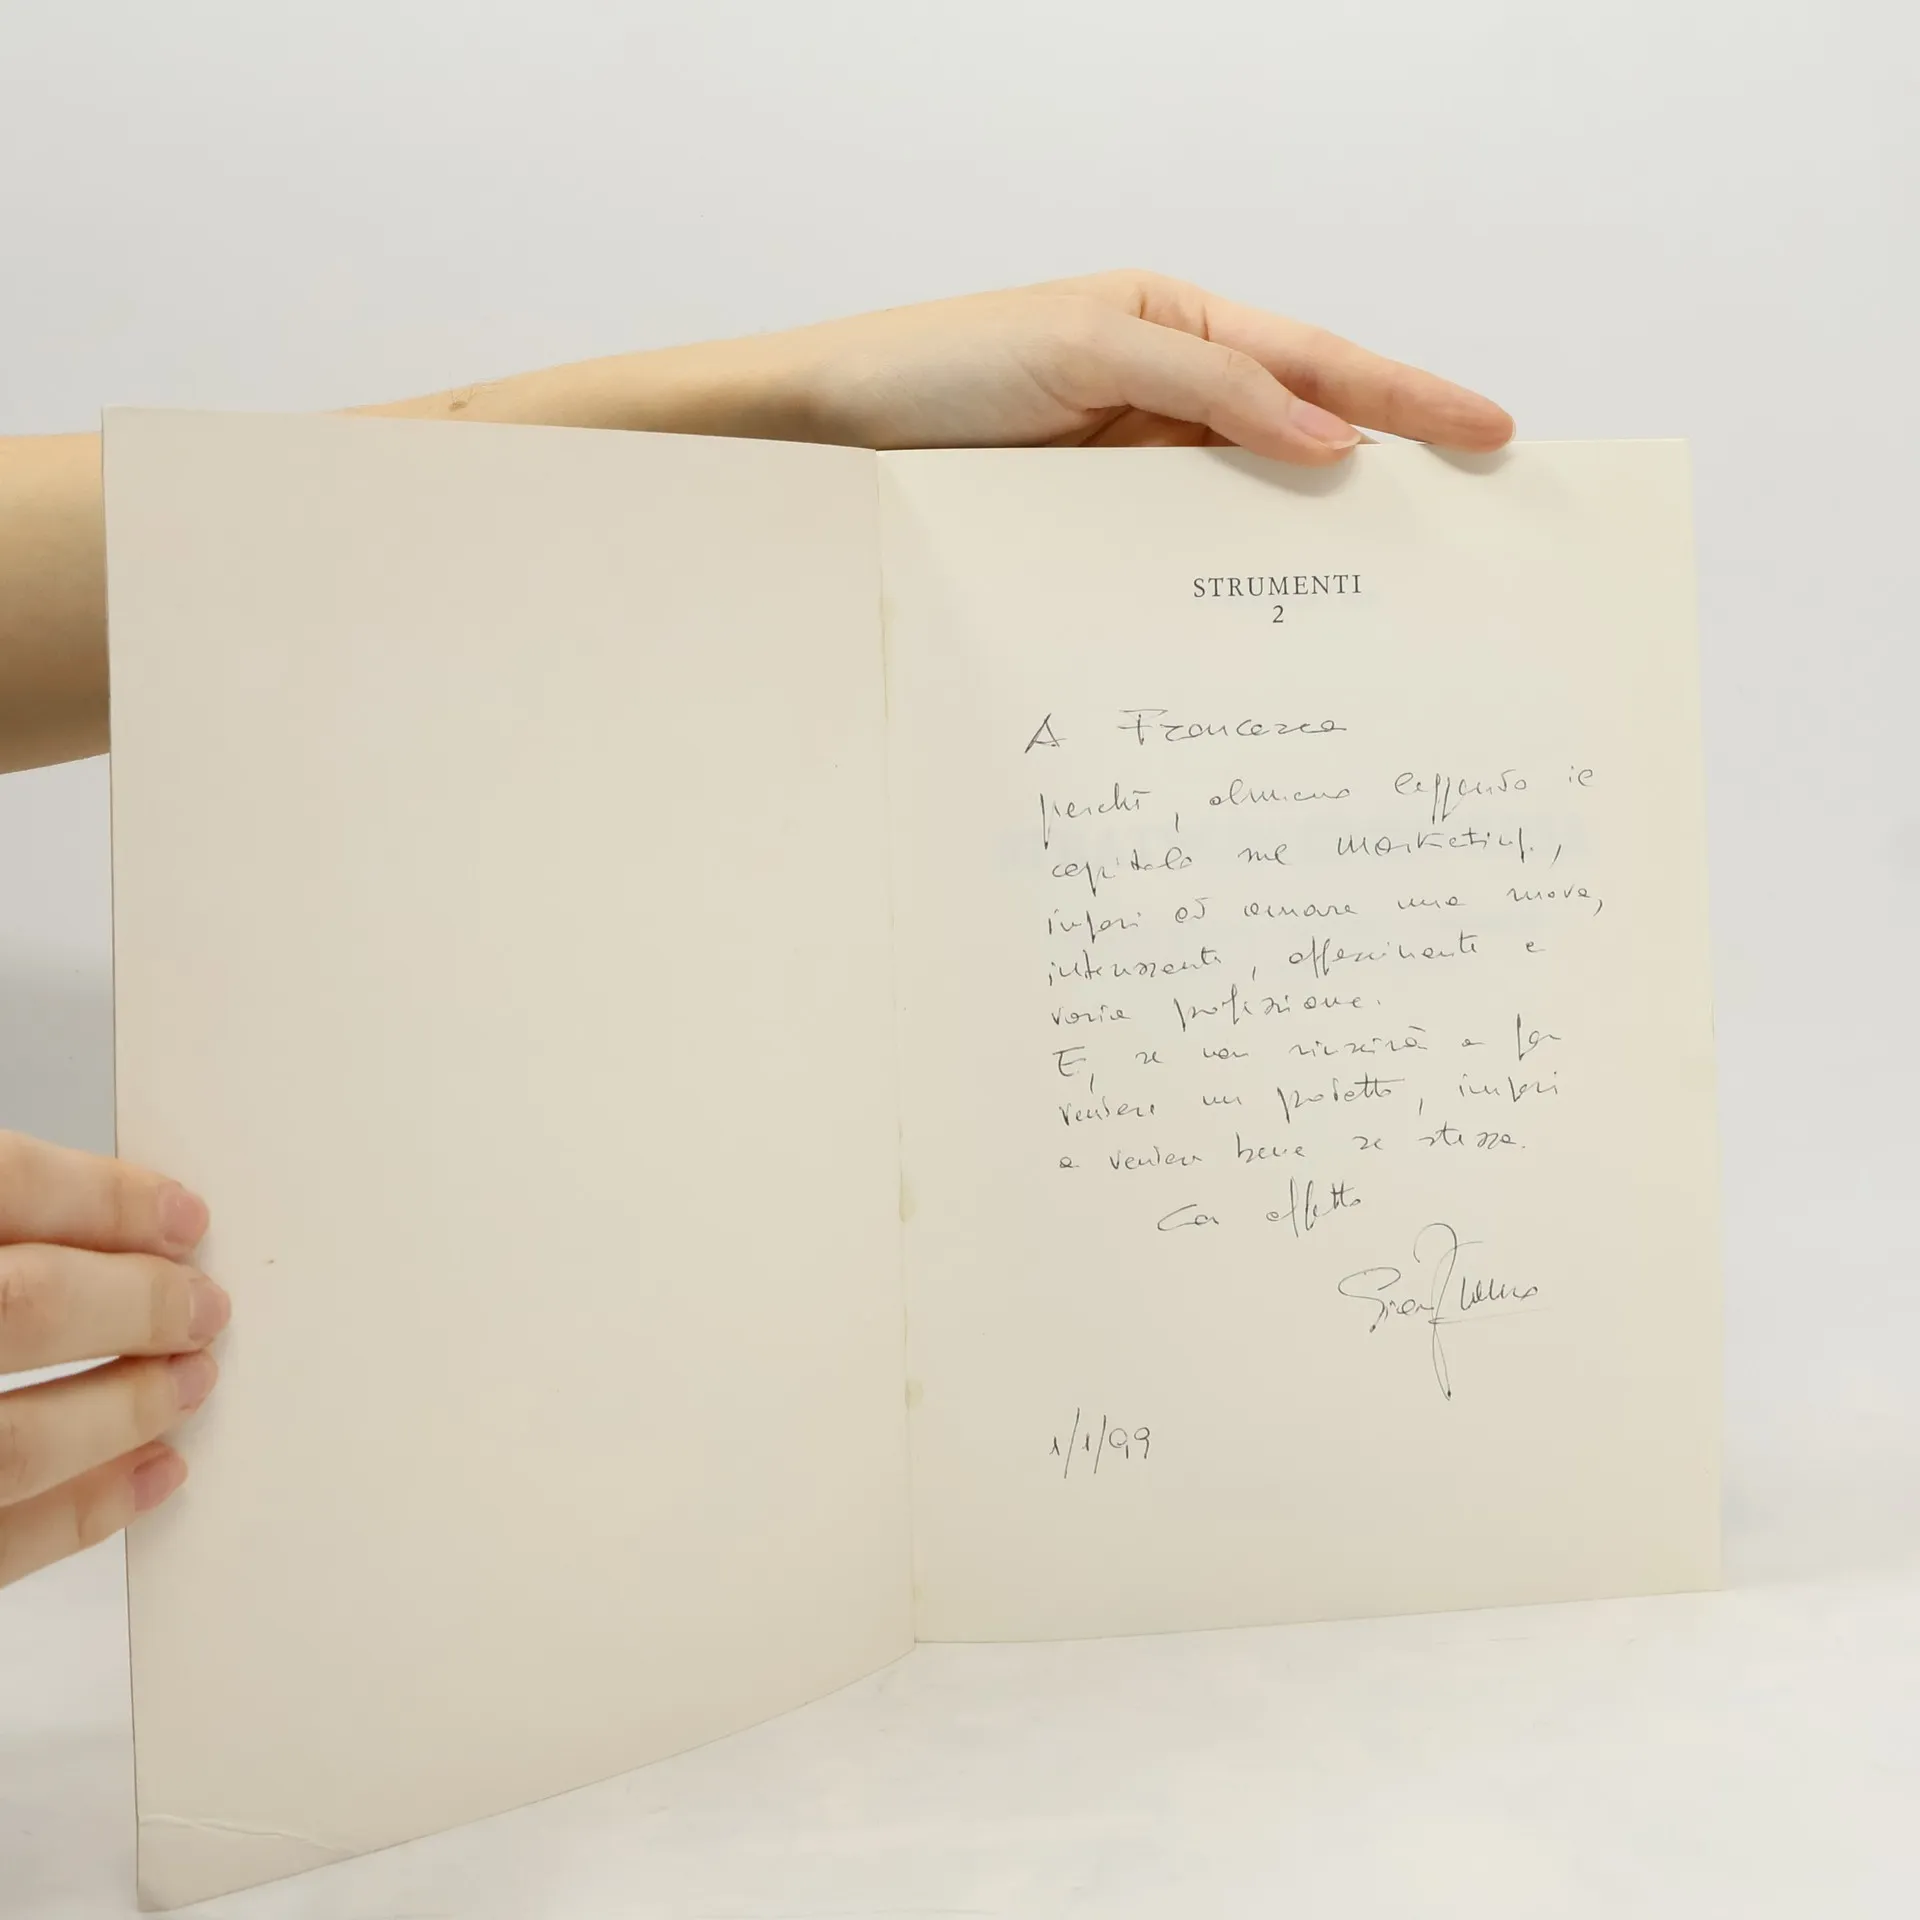 STRUMENTI
2
A Francesca
perché, almeno leggendo il
capitolo sul marketing,
impari ad amare una nuova,
interessante, affascinante e
varia professione.
E, se non riuscirà a far
vendere un prodotto, impari
a vendere bene se stessa.
Con affetto
1/1/99